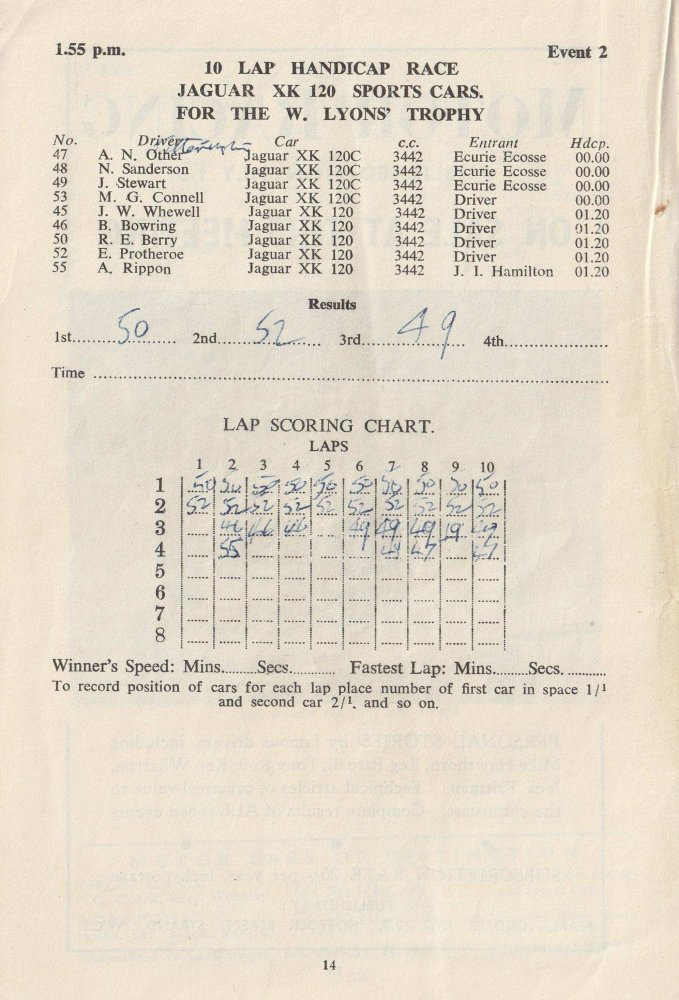 1.55 p.m. Event 2
10 LAP HANDICAP RACE
JAGUAR XK 120 SPORTS CARS.
FOR THE W. LYONS' TROPHY
No. Driver Car c.c. Entrant Hdcp.
47 A. N. Other Jaguar XK 120C 3442 Ecurie Ecosse 00.00
48 N. Sanderson Jaguar XK 120C 3442 Ecurie Ecosse 00.00
49 J. Stewart Jaguar XK 120C 3442 Ecurie Ecosse 00.00
53 M. G. Connell Jaguar XK 120C 3442 Driver 00.00
45 J. W. Whewell Jaguar XK 120 3442 Driver 01.20
46 B. Bowring Jaguar XK 120 3442 Driver 01.20
50 R. E. Berry Jaguar XK 120 3442 Driver 01.20
52 E. Protheroe Jaguar XK 120 3442 Driver 01.20
55 A. Rippon Jaguar XK 120 3442 J. I. Hamilton 01.20
Results
1st....50.... 2nd....52.... 3rd....49.... 4th....
Time ....
LAP SCORING CHART.
LAPS
1 2 3 4 5 6 7 8 9 10
1 50 50 50 50 50 50 50 50 50 50
2 52 52 52 52 52 52 52 52 52 52
3 46 46 46 49 49 49 19 49
4 55 47 47 47
5
6
7
8
Winner's Speed: Mins.........Secs............ Fastest Lap: Mins.........Secs. ..........
To record position of cars for each lap place number of first car in space 1/1
and second car 2/1, and so on.
14